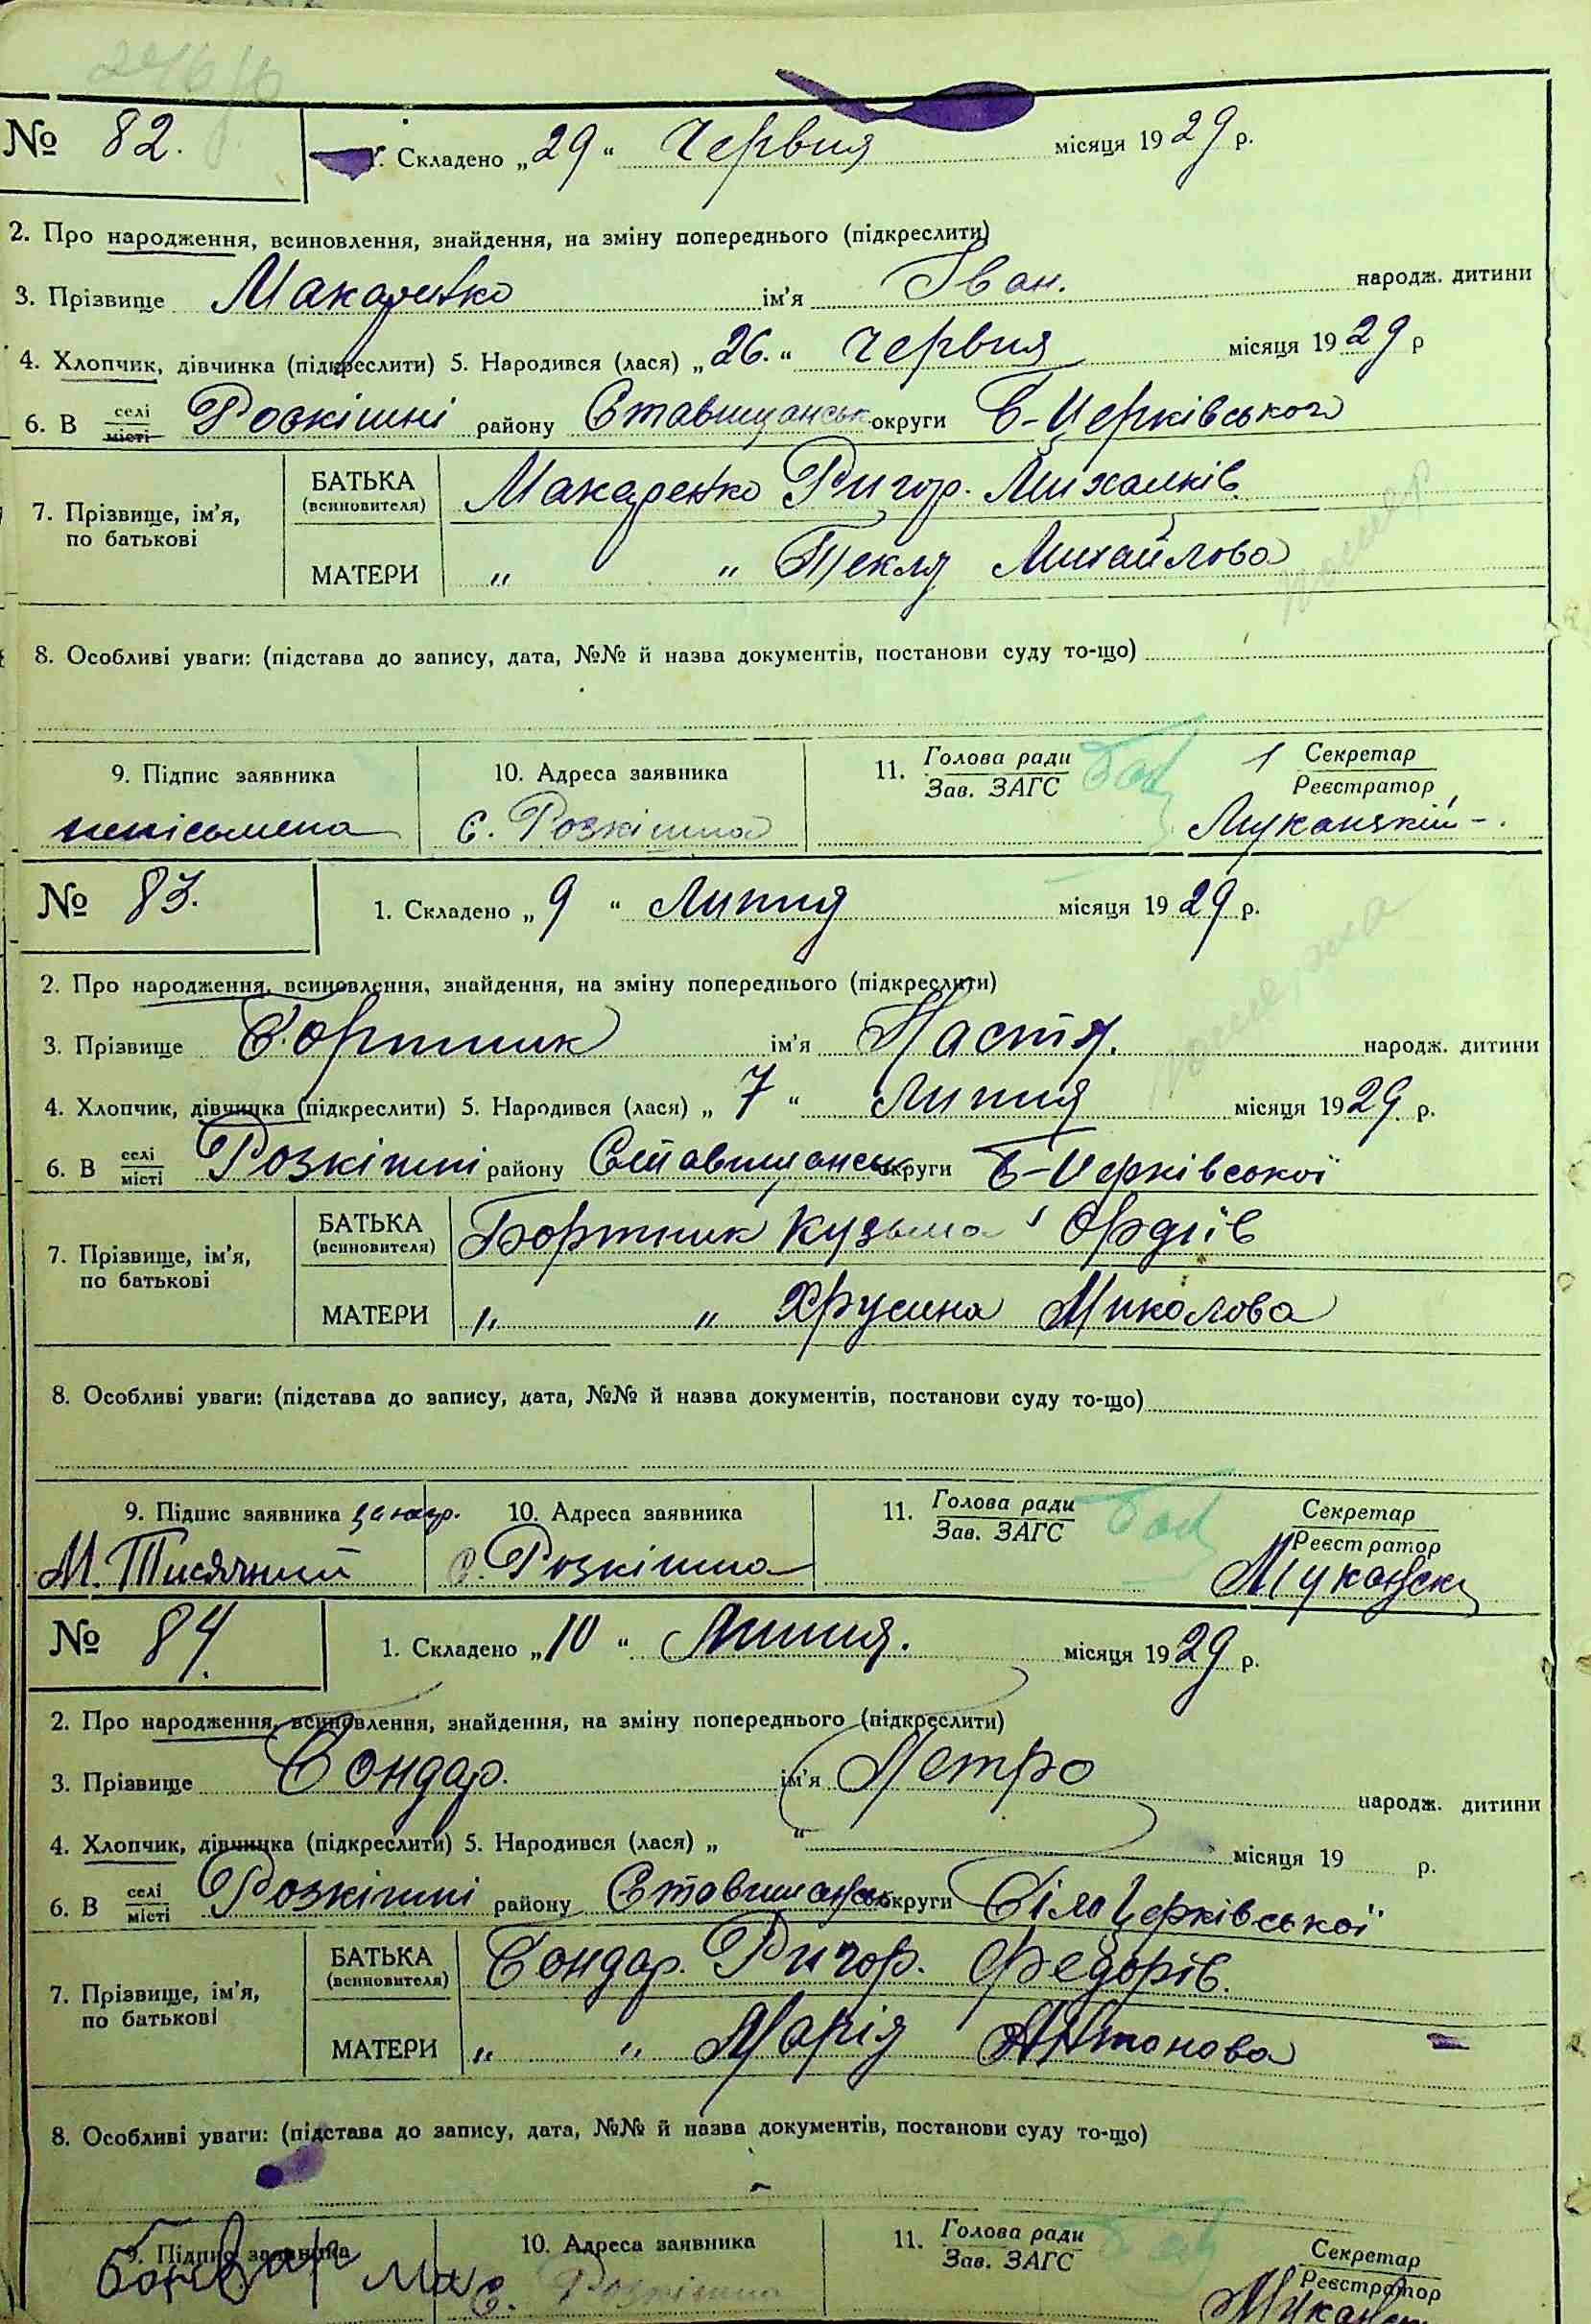 № 82. 1. Складено „29“ Червня місяця 1929 р.
2. Про народження, всиновлення, знайдення, на зміну попереднього (підкреслити)
3. Прізвище Макаренко ім'я Іван. народж. дитини
4. Хлопчик, дівчинка (підкреслити) 5. Народився (лася) „26.“ Червня місяця 1929 р
6. В селі місті Розкішні району Ставищанськ округи Б-Церківського
7. Прізвище, ім'я, по батькові
БАТЬКА (всиновителя) Макаренко Григор. Михалків
МАТЕРИ „ „ Текля Михайлова
8. Особливі уваги: (підстава до запису, дата, №№ й назва документів, постанови суду то-що)
9. Підпис заявника 10. Адреса заявника 11. Голова ради Зав. ЗАГС Секретар Реєстратор
непісьмена с. Розкішна
№ 83. 1. Складено „9“ Липня місяця 1929 р.
2. Про народження, всиновлення, знайдення, на зміну попереднього (підкреслити)
3. Прізвище Бортник ім'я Настя. народж. дитини
4. Хлопчик, дівчинка (підкреслити) 5. Народився (лася) „7“ Липня місяця 1929 р.
6. В селі місті Розкішні району Ставищанськ округи Б-Церківської
7. Прізвище, ім'я, по батькові
БАТЬКА (всиновителя) Бортник Кузьма
МАТЕРИ „ „ Хрусина Миколова
8. Особливі уваги: (підстава до запису, дата, №№ й назва документів, постанови суду то-що)
9. Підпис заявника 10. Адреса заявника 11. Голова ради Зав. ЗАГС Секретар Реєстратор
М. Тисячний с. Розкішна
№ 84. 1. Складено „10“ Липня. місяця 1929 р.
2. Про народження, всиновлення, знайдення, на зміну попереднього (підкреслити)
3. Прізвище Бондар. ім'я Петро народж. дитини
4. Хлопчик, дівчинка (підкреслити) 5. Народився (лася) „ “ місяця 19 р.
6. В селі місті Розкішні району Ставищанськ округи Білоцерківської
7. Прізвище, ім'я, по батькові
БАТЬКА (всиновителя) Бондар. Григор. Федорів.
МАТЕРИ „ „ Марія Антонова
8. Особливі уваги: (підстава до запису, дата, №№ й назва документів, постанови суду то-що)
9. Підпис заявника 10. Адреса заявника 11. Голова ради Зав. ЗАГС Секретар Реєстратор
Бондар с. Розкішна